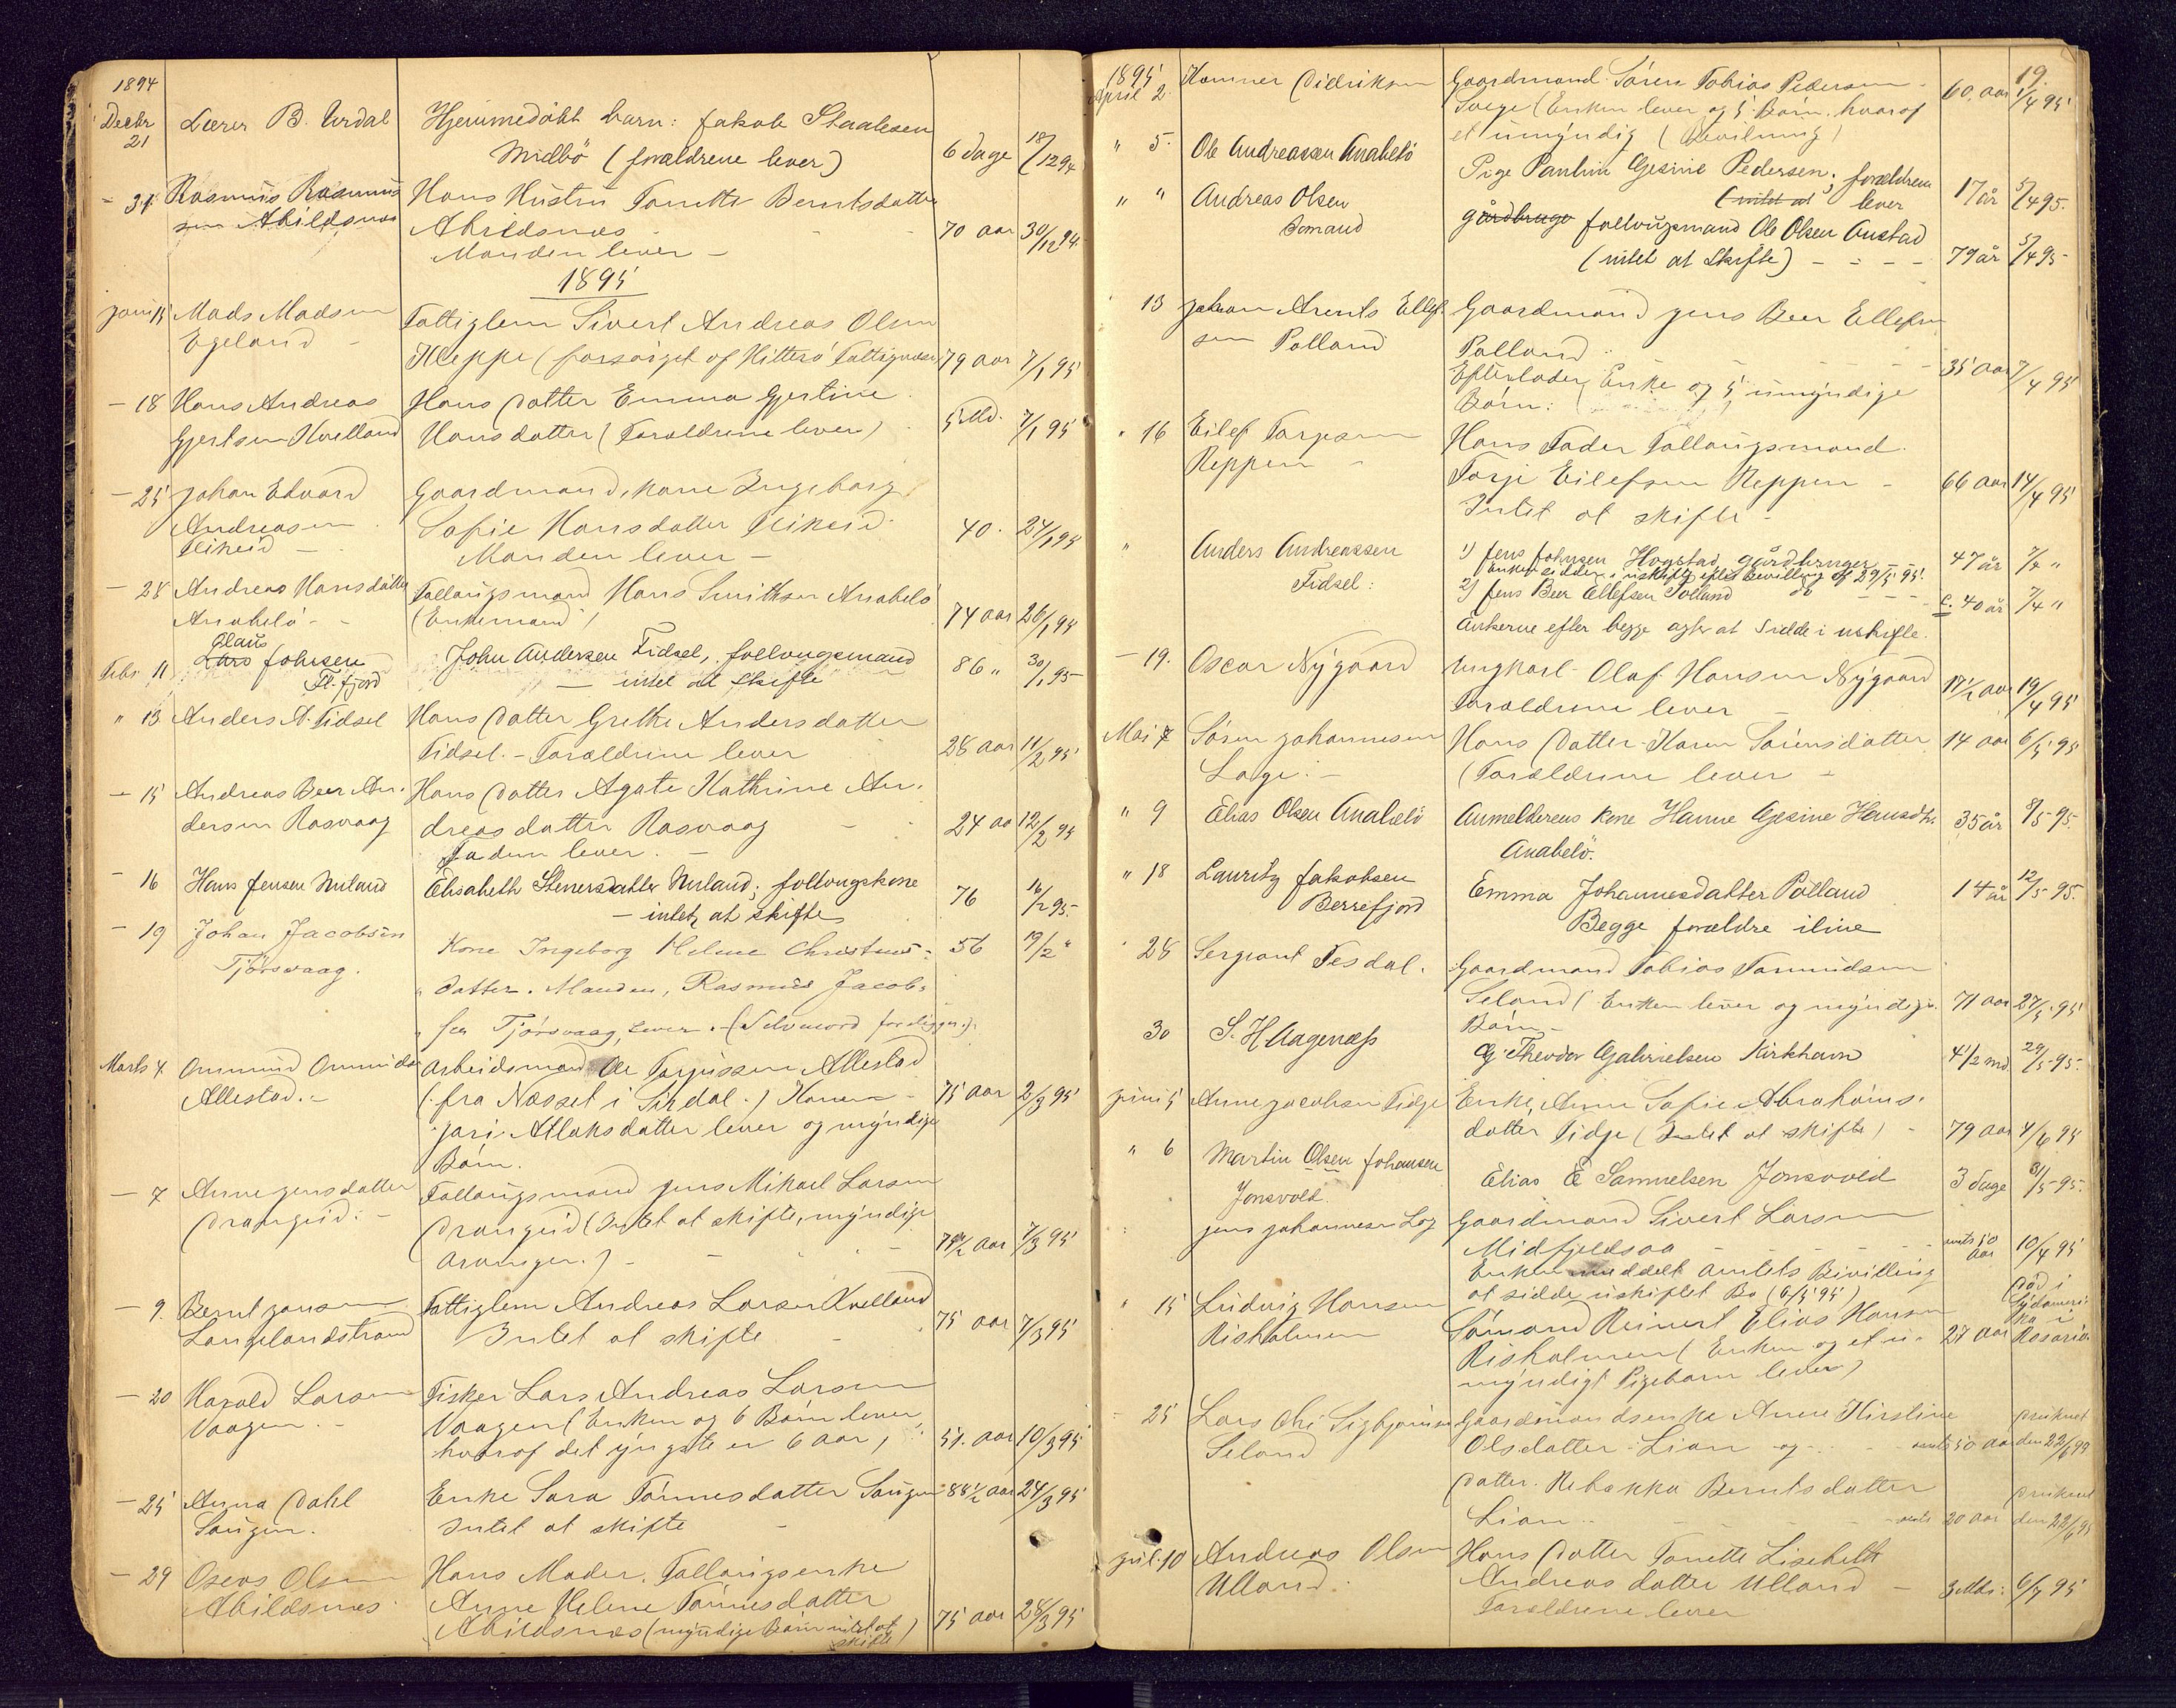 1894
Decbr 21 Lærer B. Urdal Hjemmedöbt barn: Jakob Staalesen
Midbö (forældrene lever) 6 dage 18/12 94
- 31 Rasmus Rasmus Hans Hustru Tonette Berntsdatter
sen Abildsnæs Abildsnæs - - 70 aar 30/12 94
Manden lever -
1895
Jan 15 Mads Madsen Fattiglem Sivert Andreas Olsen
Egeland - Kleppe (forsörget af Hitterö Fattigvæsen 79 aar 7/1 95
- 18 Hans Andreas Hans Datter Emma Gjertine
Gjertsen Kvelland Hansdatter (Forældrene lever) 5 Md. 7/1 95
- 25 Johan Edvard Gaardmandskone Ingeborg
Andreasen Sofie Hansdatter 40. 24/1 95
Manden lever -
- 28 Andrea Hansdatter Follougsmand Hans Smithsen Anabelö
Anabelö - - (Enkemand) 74 aar 26/1 95
Febr 11 Olaus Lars Johnsen John Andersen Fidsel, follougsmand 86 " 30/1 95
Fl.fjord - intet at skifte
" 13 Anders A. Fidsel Hans Datter Grethe Andersdatter
Fidsel. - Forældrene lever 28 aar 11/2 95
- 15 Andreas Beer An- Hans Datter Agate Kathrine An-
dersen Rasvaag dreasdatter Rasvaag - 24 aa 12/2 95
Faderen lever. -
- 16 Hans Jensen Nuland Elisabeth Stenersdatter Nuland; follougskone 76 16/2 95.
- intet at skifte
- 19 Johan Jacobsen Kone Ingeborg Helene Christens- 56 19/2 "
Tjörsvaag. datter. Manden, Rasmus Jacob-
sen Tjörsvaag, lever. (Selvmord foreligger.).
Marts 4 Ommund Ommunds Arbeidsmand Ole Torjussen Allestad
Allestad. - (fra Næsset i Sirdal.) Konen - 75 aar 2/3 95
Jari Atlaksdatter lever og myndige
Börn.
- 7 Anne Jensdatter Follougsmand Jens Mikael Larsen
Drangeid. - Drangeid (Intet at skifte, myndige
Arvinger.) - 79 1/2 aar 7/3 95
- 9. Bernt Jansen Fattiglem Andreas Larsen Kvelland
Langelandstrand Intet at skifte - 75 aar 7/3 95
- 20 Harald Larsen Fisker Lars Andreas Larsen
Vaagen. - Vaagen (Enken og 6 Börn lever,
hvoraf det yngste er 6 aar) 51. aar 10/3 95
- 25 Anna Dahl Enke Sara Tönnesdatter 88 1/2 aar 24/3 95
Intet at skifte -
- 29 Oseas Olsen Hans Moder. Follougsenke
Abildsnæs. Anne Helene Tönnesdatter
Abildsnæs (myndige Börn intet at skifte) 75 aar 28/3 95
19.
1895
April 2. Didriksen Gaardmand Sören Tobias Pedersen 60. aar 1/4 95
(Enken lever og 5 Börn. hvoraf
et umyndig (Bevilning)
" 5. Ole Andreassen Anabelö Pige Pauline Gesine Pedersen; forældrene 17 år 5/4 95.
(intet at lever
" " Andreas Olsen gårdbruge follougsmand Ole Olsen Austad
Sömand (intet at skifte) - - - - 79 år 5/4 95
13 Johan Arents Ellef- Gaardmand Jens Beer Ellefsen
sen Polland Polland - - - 35 aar 7/4 95
Efterlader Enke og 5 umyndige
Börn:
" 16 Eilef Torjesen Hans Fader Follougsmand.
Reppen - Torje Eilefsen Reppen - 66 aar 14/4 95
Intet at skifte -
" Anders Andreassen 1) Jens Johnsen Hogstad gårdbruger - - 47 år 7/4 "
Fidsel: enken sidder i uskifte efter bevilling af 29/5 95.
2) Jens Beer Ellefsen Polland do - - - c. 40 år 7/4 "
Enkerne efter begge agter at sidde i uskifte.
- 19. Oscar Nygaard Ungkarl Olaf Hansen Nygaard 17 1/2 aar 19/4 95
Forældrene lever -
Mai 7 Sören Johannesen Hans Datter Karen Sörensdatter 14 aar 6/5 95
Loge. - (Forældrene lever -
" 9 Elias Olsen Anabelö Anmelderens kone Hanne Gesine Hansdtr. 35 år 8/5 95.
Anabelö.
" 18 Lauritz Jakobsen Emma Johannesdatter Polland 14 år 12/5 95.
Berrefjord Begge forældre ilive
" 28 Sergeant Fesdal. Gaardmand Tobias
Seland (Enken lever og myndige 71 aar 27/5 95
Börn. -
30 S. H Aagenæs G. Theodor Gabrielsen Kirkhavn 4 1/2 md 29/5 95.
Juni 5 Anne Jacobsen Fidje Enke, Anne Sofie Abrahams-
datter Fidje (Intet at skifte) - 79 aar 4/6 95
" 6 Martin Olsen Johansen Elias E Samuelsen Jonsvold 3 dage 31/5 95.
Jonsvold.
Jens Johannesen Log Gaardmand Sivert Larsen
Midfjeldsaa - - - - 50 aar 10/4 95
Enken meddelt Amtets Bevilling
at sidde uskiftet Bo (6/5 95)
" 15 Ludvig Hansen Sömand Reinert Elias Hansen död i Sydameri-ka i
Risholmen Risholmen (Enken og et u- 27 aar Rosario.
myndigt Pigebarn lever)
- 25 Lars Chr Sigbjörnsen Gaardmandsenke Anne Kirstine druknet
Seland Olsdatter Lian - og - 50 aar den 22/6 95
Datter. Rebekka Berntsdatter druknet
Lian - - 20 aar den 22/6 95
Jul. 10 Andreas Olsen Hans Datter Tonette Lisebeth
Ulland. Andreasdatter Ulland - 3 Mdr. 6/7 95
Forældrene lever